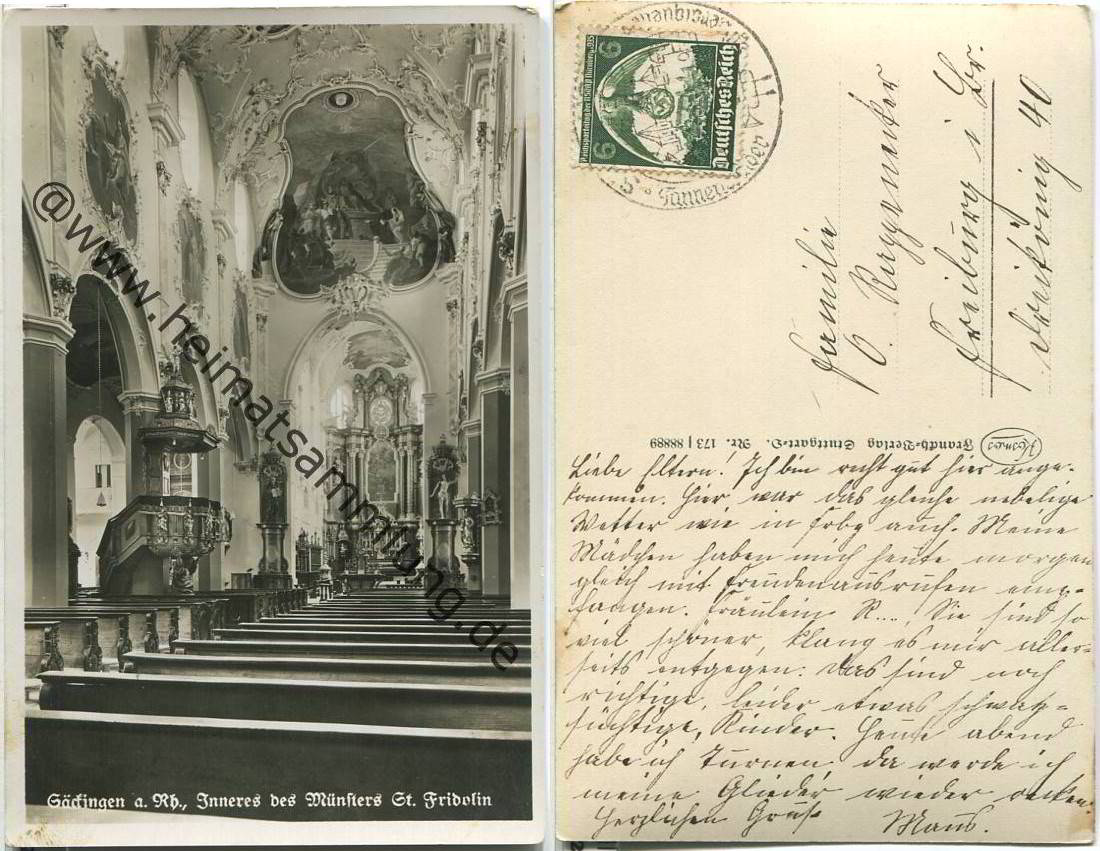 Säckingen a. Rh., Inneres des Münsters St. Fridolin
@www.heimatsammlung.de
6 Reichsparteitag der NSDAP Nürnberg 1935 6
Deutsches Reich
Familie
O. Roggenwiler
Freiburg i. Br.
Dreikönig 40
Kosmos Franckh-Verlag Stuttgart-O. Nr. 173 | 88889
Liebe Eltern! Ich bin recht gut hier ange-
kommen. Hier war das gleiche nebelige
Wetter wie in Frbg auch. Meine
Mädchen haben mich heute morgen
gleich mit Freudenausrufen emp-
fangen. Fräulein R..., Sie sind so
viel schöner, klang es mir aller-
seits entgegen. Das sind noch
richtige, leider etwas schwatz-
süchtige, Kinder. Heute abend
habe ich Turnen da werde ich
meine Glieder wieder recken.
Herzlichen Gruß Maus.